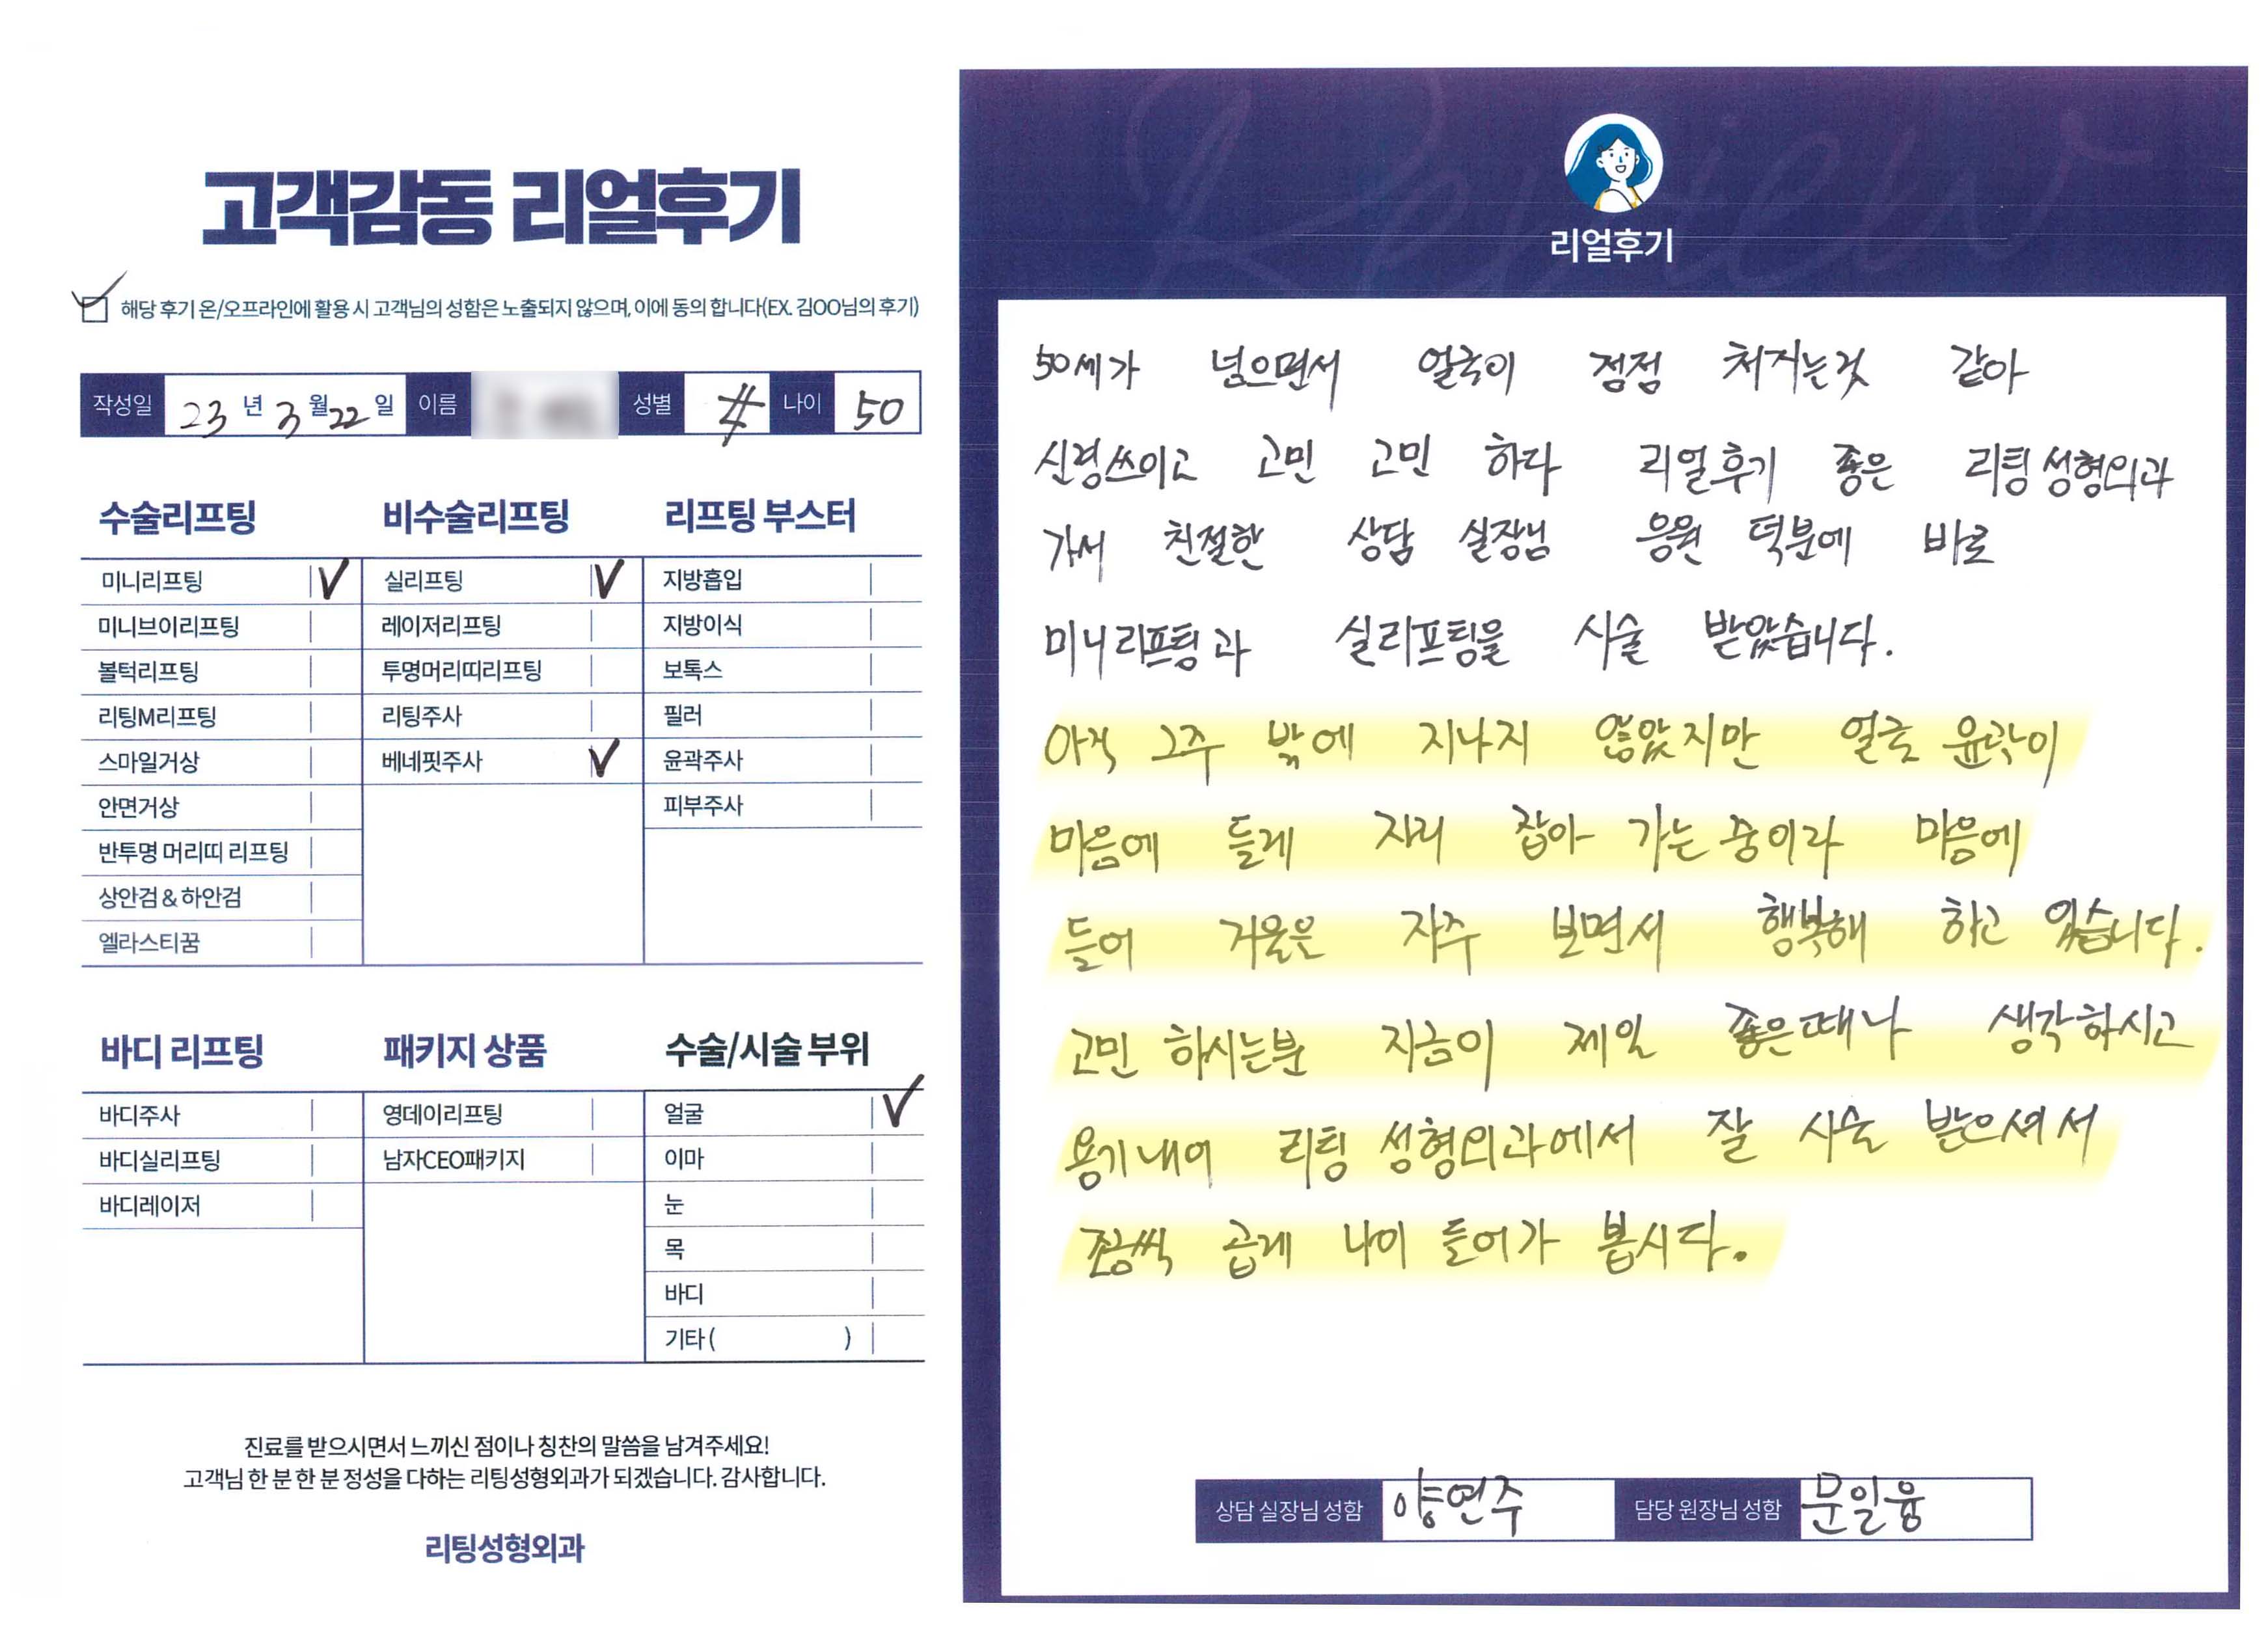 고객감동 리얼후기
해당 후기 온/오프라인에 활용 시 고객님의 성함은 노출되지 않으며, 이에 동의 합니다(EX. 김OO님의 후기)
작성일 23 년 3 월 22 일 이름 성별 나이 50
수술리프팅
미니리프팅
미니브이리프팅
볼턱리프팅
리팅M리프팅
스마일거상
안면거상
반투명 머리띠 리프팅
상안검 & 하안검
엘라스티꿈
비수술리프팅
실리프팅
레이저리프팅
투명머리띠리프팅
리팅주사
베네핏주사
리프팅 부스터
지방흡입
지방이식
보톡스
필러
윤곽주사
피부주사
바디 리프팅
바디주사
바디실리프팅
바디레이저
패키지 상품
영데이리프팅
남자CEO패키지
수술/시술 부위
얼굴
이마
눈
목
바디
기타 ( )
진료를 받으시면서 느끼신 점이나 칭찬의 말씀을 남겨주세요!
고객님 한 분 한 분 정성을 다하는 리팅성형외과가 되겠습니다. 감사합니다.
리팅성형외과
Review
리얼후기
50세가 넘으면서 얼굴이 점점 처지는것 같아
신경쓰이고 고민 고민 하다 리얼후기 좋은 리팅성형외과
가서 친절한 상담 실장님 응원 덕분에 바로
미니리프팅과 실리프팅을 시술 받았습니다.
아직 2주 밖에 지나지 않았지만 얼굴 윤곽이
마음에 들게 자리 잡아 가는중이라 마음에
들어 거울은 자주 보면서 행복해 하고 있습니다.
고민 하시는분 지금이 제일 좋은때나 생각하시고
용기내어 리팅 성형외과에서 잘 시술 받으셔서
조금씩 곱게 나이 들어가 봅시다.
상담 실장님 성함 양연주 담당 원장님 성함 문일융